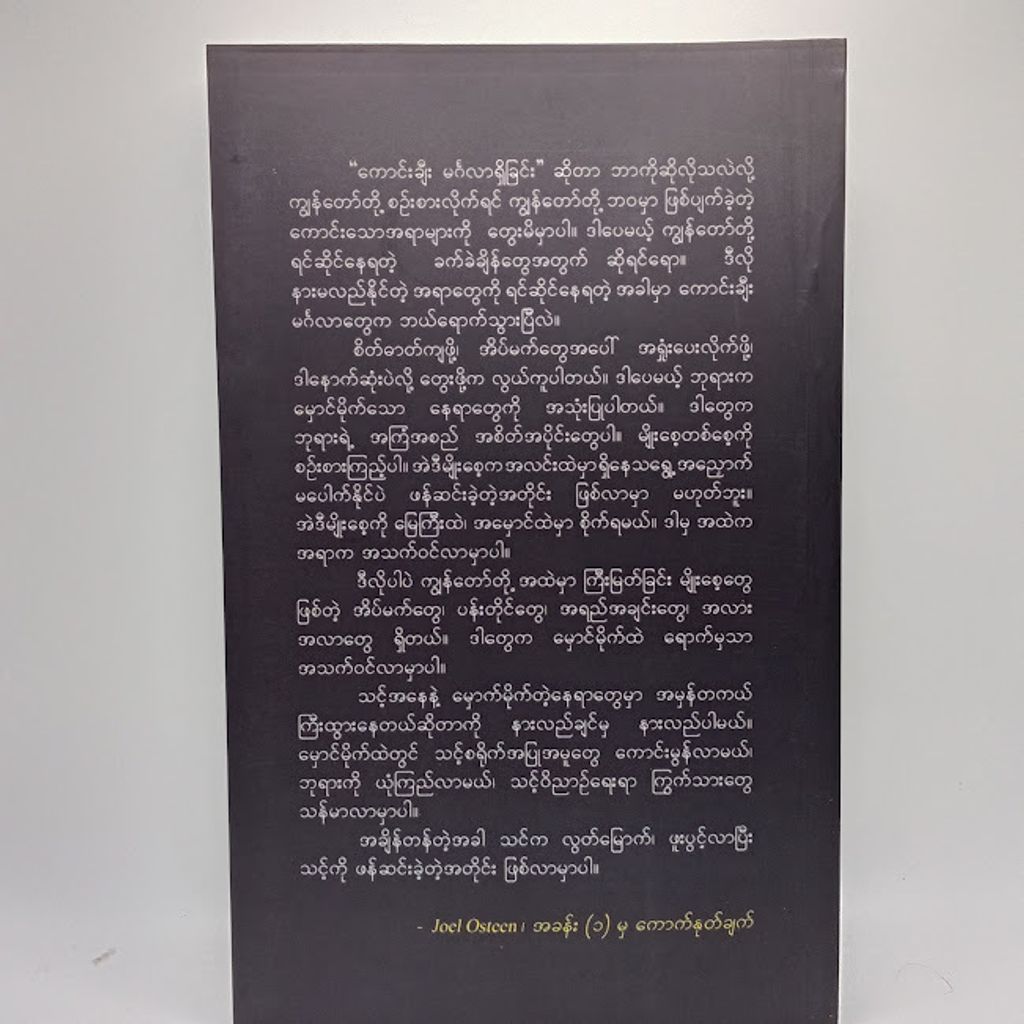 “ကောင်းချီး မင်္ဂလာရှိခြင်း” ဆိုတာ ဘာကိုဆိုလိုသလဲလို့
ကျွန်တော်တို့ စဉ်းစားလိုက်ရင် ကျွန်တော်တို့ ဘဝမှာ ဖြစ်ပျက်ခဲ့တဲ့
ကောင်းသောအရာများကို တွေးမိမှာပါ။ ဒါပေမယ့် ကျွန်တော်တို့
ရင်ဆိုင်နေရတဲ့ ခက်ခဲချိန်တွေအတွက် ဆိုရင်ရော။ ဒီလို
နားမလည်နိုင်တဲ့ အရာတွေကို ရင်ဆိုင်နေရတဲ့ အခါမှာ ကောင်းချီး
မင်္ဂလာတွေက ဘယ်ရောက်သွားပြီလဲ။
စိတ်ဓာတ်ကျဖို့၊ အိပ်မက်တွေအပေါ် အရှုံးပေးလိုက်ဖို့၊
ဒါနောက်ဆုံးပဲလို့ တွေးဖို့က လွယ်ကူပါတယ်။ ဒါပေမယ့် ဘုရားက
မှောင်မိုက်သော နေရာတွေကို အသုံးပြုပါတယ်။ ဒါတွေက
ဘုရားရဲ့ အကြံအစည် အစိတ်အပိုင်းတွေပါ။ မျိုးစေ့တစ်စေ့ကို
စဉ်းစားကြည့်ပါ။ အဲဒီမျိုးစေ့က အလင်းထဲမှာ ရှိနေသရွေ့ အညှောက်
မပေါက်နိုင်ပဲ ဖန်ဆင်းခဲ့တဲ့အတိုင်း ဖြစ်လာမှာ မဟုတ်ဘူး။
အဲဒီမျိုးစေ့ကို မြေကြီးထဲ၊ အမှောင်ထဲမှာ စိုက်ရမယ်။ ဒါမှ အထဲက
အရာက အသက်ဝင်လာမှာပါ။
ဒီလိုပါပဲ ကျွန်တော်တို့ အထဲမှာ ကြီးမြတ်ခြင်း မျိုးစေ့တွေ
ဖြစ်တဲ့ အိပ်မက်တွေ၊ ပန်းတိုင်တွေ၊ အရည်အချင်းတွေ၊ အလား
အလာတွေ ရှိတယ်။ ဒါတွေက မှောင်မိုက်ထဲ ရောက်မှသာ
အသက်ဝင်လာမှာပါ။
သင့်အနေနဲ့ မှောက်မိုက်တဲ့နေရာတွေမှာ အမှန်တကယ်
ကြီးထွားနေတယ်ဆိုတာကို နားလည်ချင်မှ နားလည်ပါမယ်။
မှောင်မိုက်ထဲတွင် သင့်စရိုက်အပြုအမူတွေ ကောင်းမွန်လာမယ်၊
ဘုရားကို ယုံကြည်လာမယ်၊ သင့်ဝိညာဉ်ရေးရာ ကြွက်သားတွေ
သန်မာလာမှာပါ။
အချိန်တန်တဲ့အခါ သင်က လွတ်မြောက်၊ ဖူးပွင့်လာပြီး
သင့်ကို ဖန်ဆင်းခဲ့တဲ့အတိုင်း ဖြစ်လာမှာပါ။
- Joel Osteen၊ အခန်း (၁) မှ ကောက်နုတ်ချက်